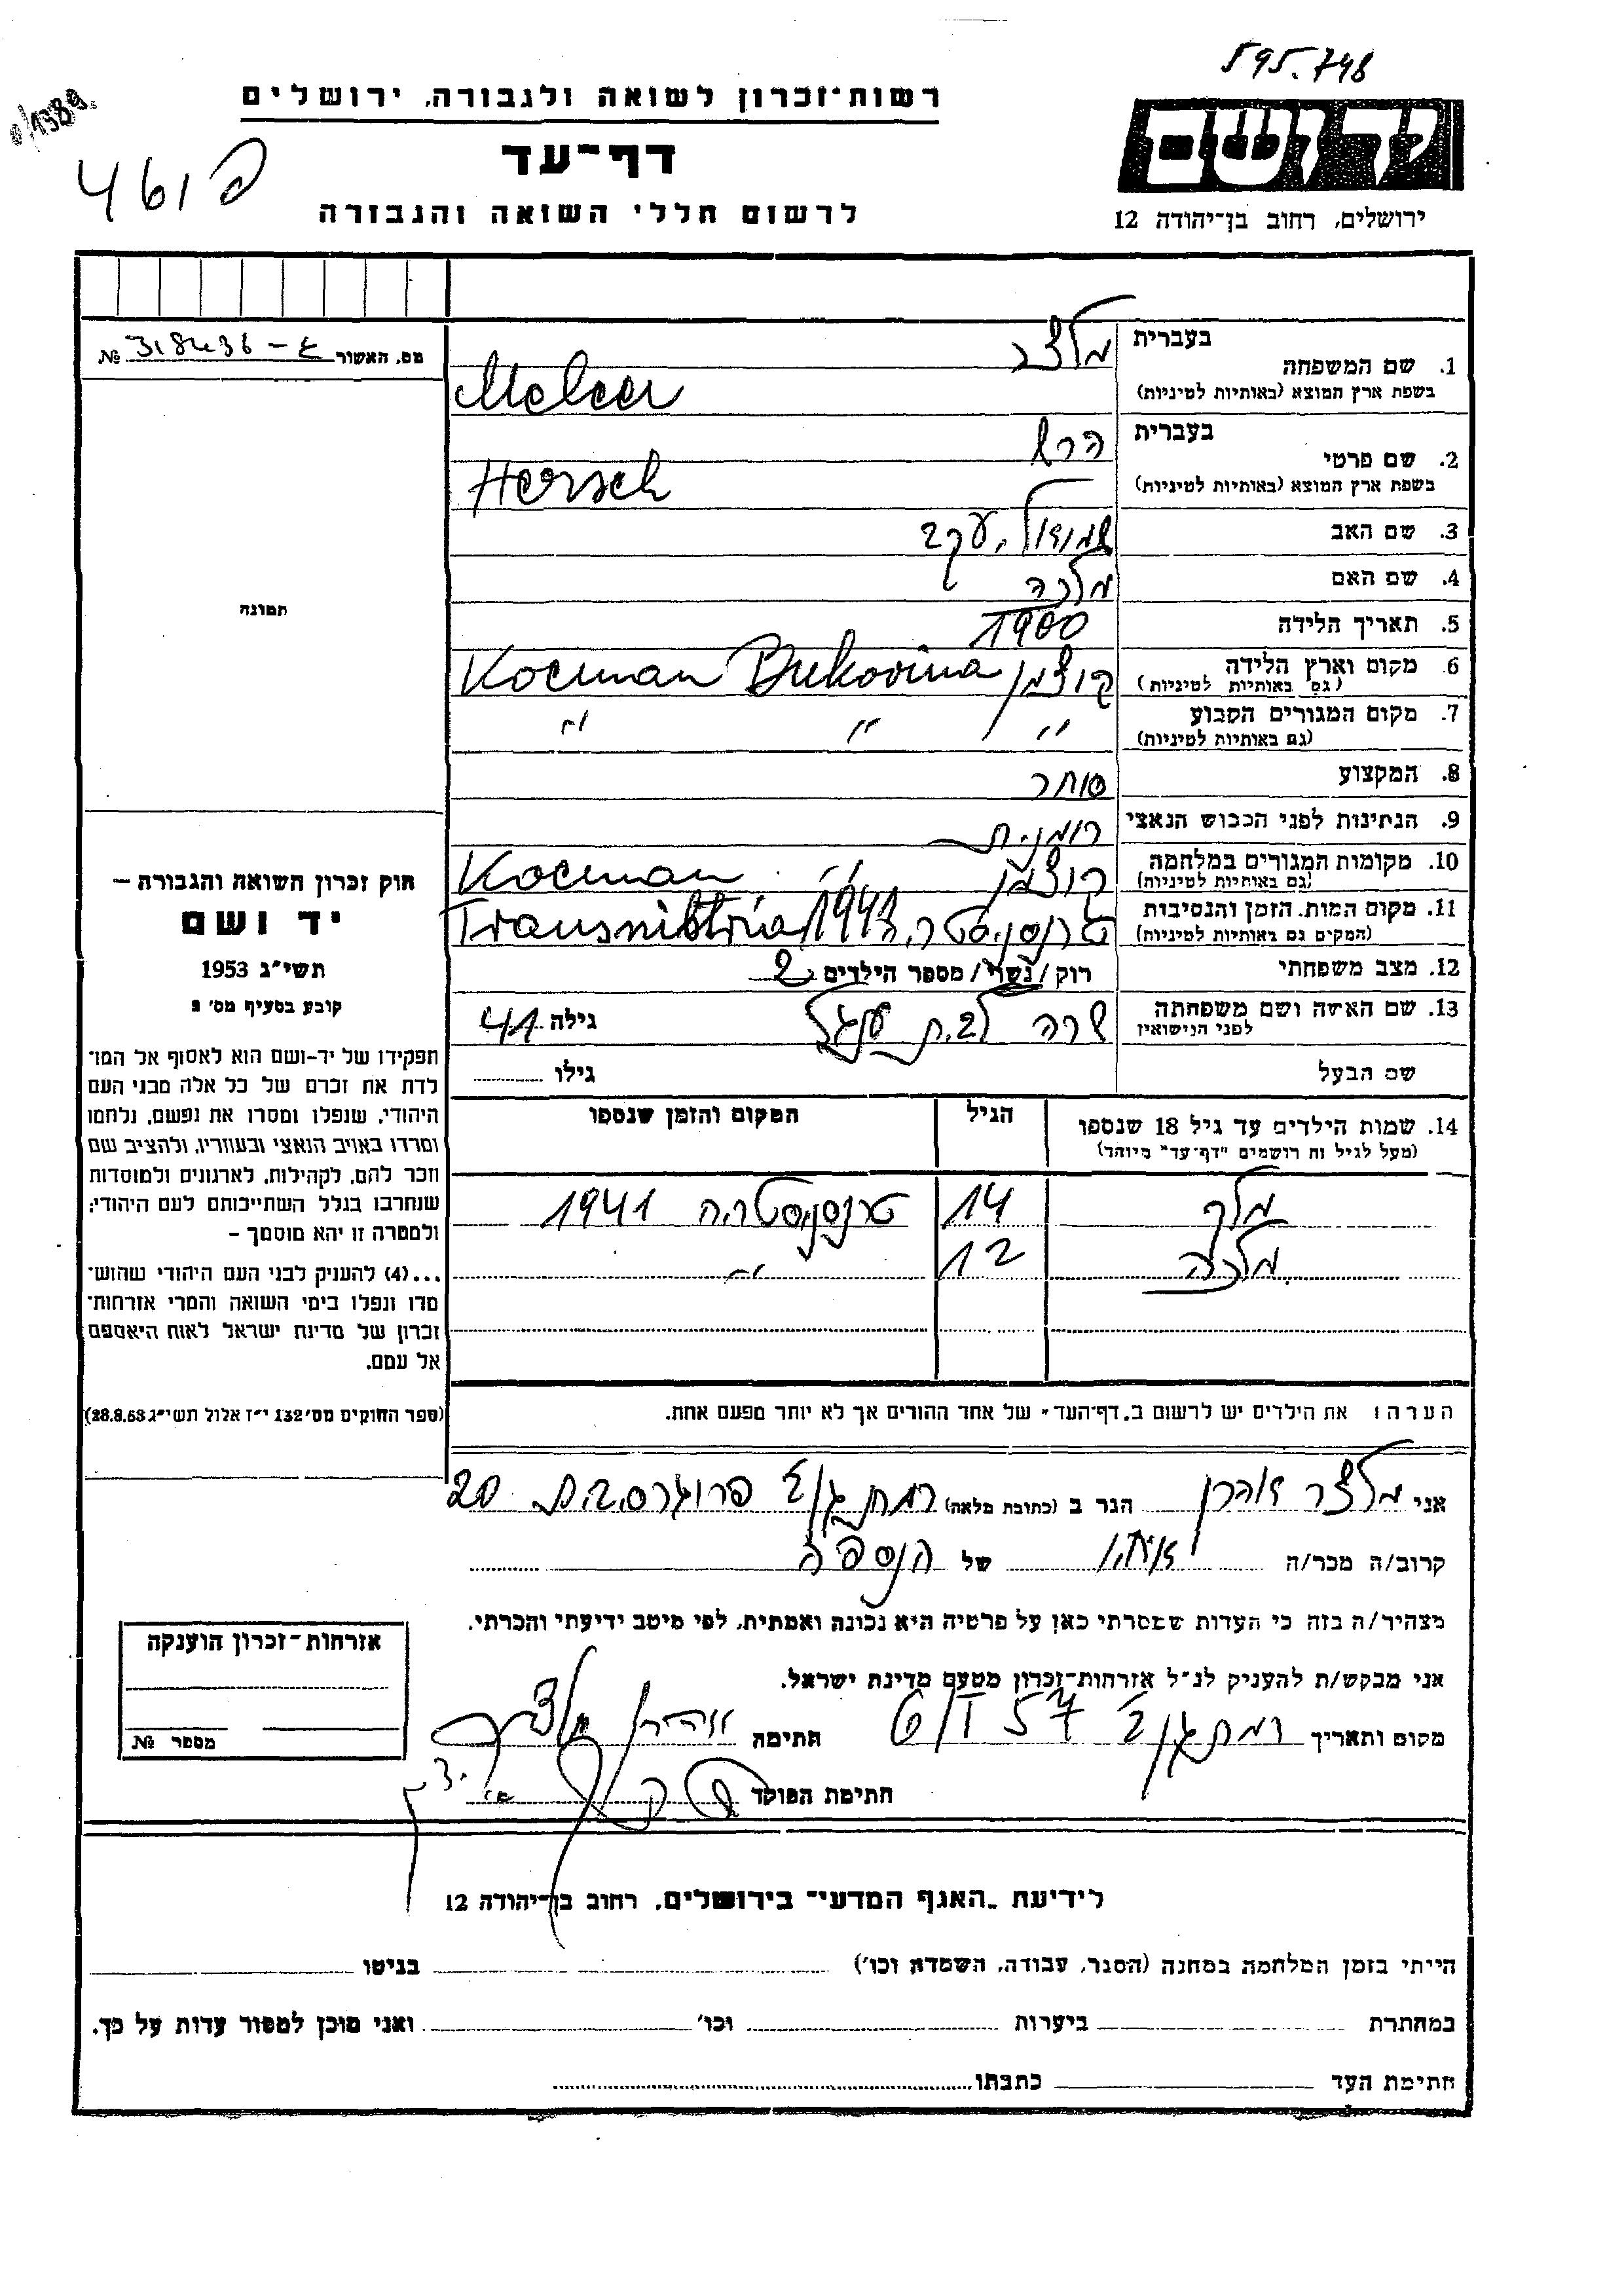 595.798
רשות־זכרון לשואה ולגבורה, ירושלים
דף־עד
לרשום חללי השואה והגבורה
461
יד ושם
ירושלים, רחוב בן־יהודה 12
מס. האשור № 318436-ע
תמונה
חוק זכרון השואה והגבורה –
יד ושם
תשי״ג 1953
קובע בסעיף מס׳ 2
תפקידו של יד-ושם הוא לאסוף אל המו־
לדת את זכרם של כל אלה מבני העם
היהודי, שנפלו ומסרו את נפשם, נלחמו
ומרדו באויב הנאצי ובעוזריו, ולהציב שם
וזכר להם, לקהילות, לארגונים ולמוסדות
שנחרבו בגלל השתייכותם לעם היהודי;
ולמטרה זו יהא מוסמך –
...(4) להעניק לבני העם היהודי שהוש־
מדו ונפלו בימי השואה והמרי אזרחות־
זכרון של מדינת ישראל לאות היאספם
אל עמם.
(ספר החוקים מס׳ 132 י״ז אלול תשי״ג 28.8.53)
1. שם המשפחה בעברית מלצר
בשפת ארץ המוצא (באותיות לטיניות) Melcer
2. שם פרטי בעברית הרש
בשפת ארץ המוצא (באותיות לטיניות) Hersch
3. שם האב שמואל יעקב
4. שם האם מלכה
5. תאריך הלידה 1900
6. מקום וארץ הלידה קוצמן Kocman Bukovina
(גם באותיות לטיניות)
7. מקום המגורים הקבוע " " "
(גם באותיות לטיניות)
8. המקצוע סוחר
9. הנתינות לפני הכבוש הנאצי רומנית
10. מקומות המגורים במלחמה קוצמן " Kocman
(גם באותיות לטיניות)
11. מקום המות, הזמן והנסיבות טרנסניסטריה Transnistria 1941
(המקום גם באותיות לטיניות)
12. מצב משפחתי רוק/נשוי/מספר הילדים 2
13. שם האשה ושם משפחתה שרה לבית גילה 41
לפני הנישואין
שם הבעל גילו
14. שמות הילדים עד גיל 18 שנספו הגיל המקום והזמן שנספו
(מעל לגיל זה רושמים "דף־עד" מיוחד)
מלך 14 טרנסניסטריה 1941
מלכה 12 "
הערה: את הילדים יש לרשום ב„דף־העד״ של אחד ההורים אך לא יותר מפעם אחת.
אני מלצר אהרן הגר ב (כתובת מלאה) רמת גן 20
קרוב/ה מכר/ה אחיו של הנספה
מצהיר/ה בזה כי העדות שמסרתי כאן על פרטיה היא נכונה ואמתית, לפי מיטב ידיעתי והכרתי.
אני מבקש/ת להעניק לנ״ל אזרחות־זכרון מטעם מדינת ישראל.
מקום ותאריך רמת גן 6/I 57 חתימה אהרן מלצר
חתימת הפוקד
אזרחות־זכרון הוענקה
מספר №
לידיעת „האגף המדעי״ בירושלים, רחוב בן־יהודה 12
הייתי בזמן המלחמה במחנה (הסגר, עבודה, השמדה וכו׳) בגיטו
במחתרת ביערות וכו׳ ואני מוכן למסור עדות על כך.
חתימת העד כתבתו